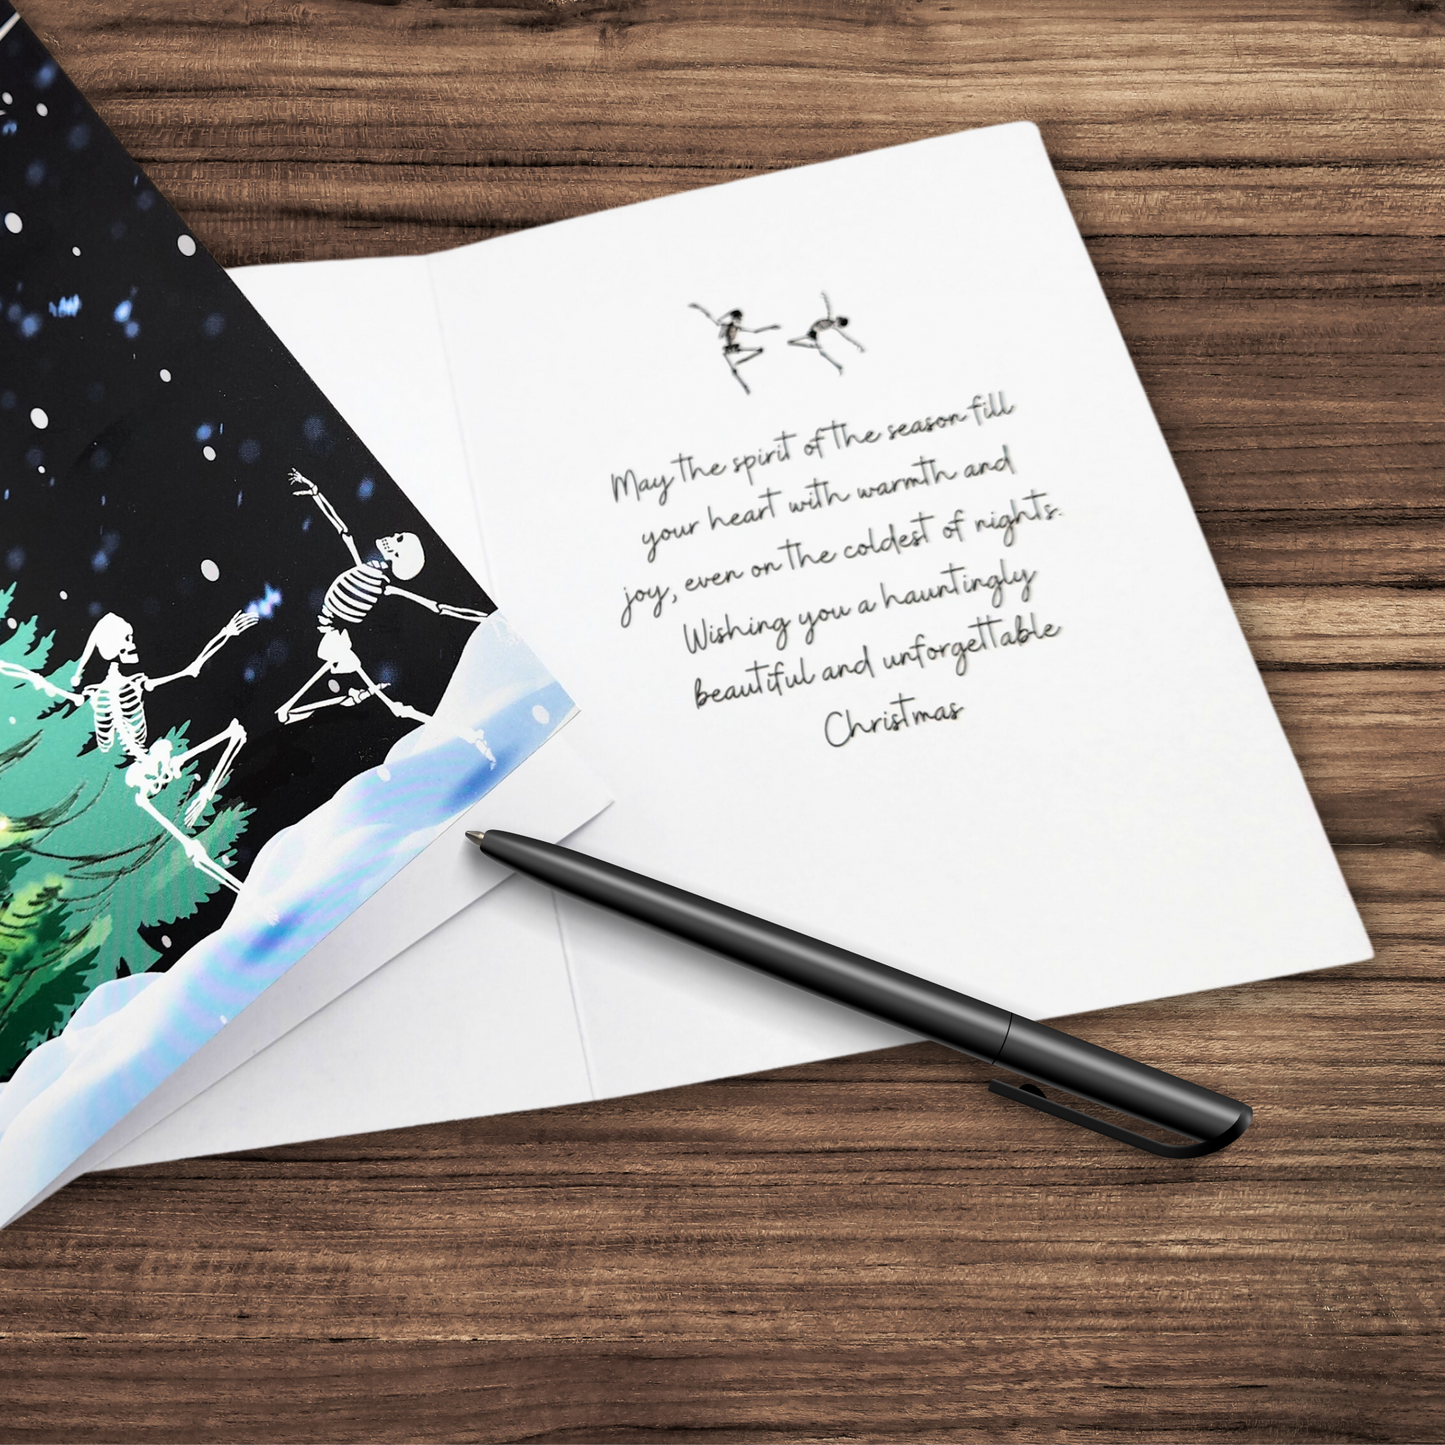 May the spirit of the season fill
your heart with warmth and
joy, even on the coldest of nights.
Wishing you a hauntingly
beautiful and unforgettable
Christmas